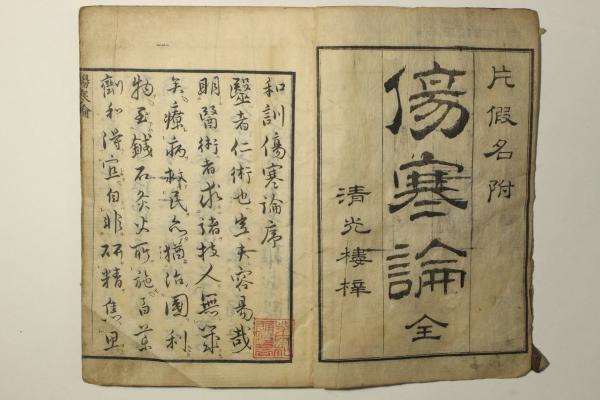 片假名附
傷寒論全
清光樓梓
和訓傷寒論序
毉者仁術也豈夫容易哉
明醫術者求諸技人無
矣療病民亦猶治國利
物至鍼石灸火所施百藥
劑和得宜自非研精焦思
傷寒論